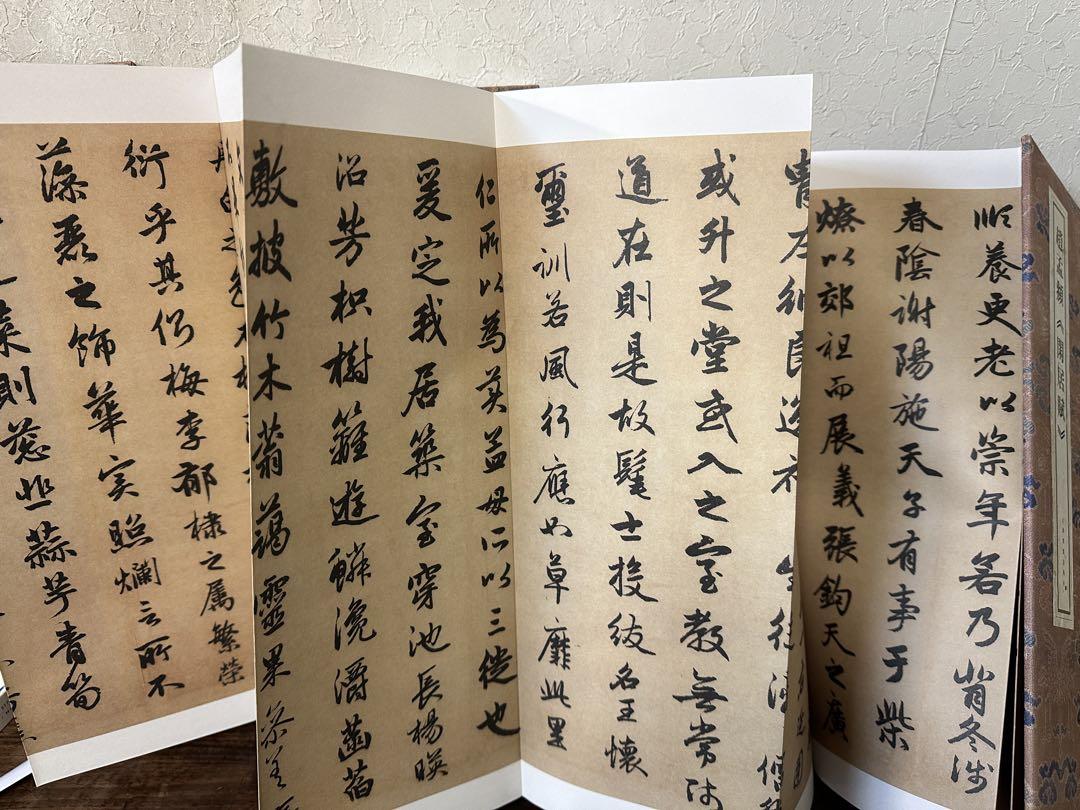 趙孟頫《閑居賦》
順養更老以崇年若乃背冬涉
春陰謝陽施天子有事于柴
燎以郊祖而展義張鈞天之廣
左納良逸祁生徒濟
或升之堂或入之室教無常師
道在則是故髦士投紱名王懷
璽訓若風行應如草靡此里
仁所以為美孟母所以三徙也
爰定我居築室穿池長楊暎
沼芳枳樹籬遊鱗瀺灂菡萏
敷披竹木蓊藹靈果參差
衍乎其側梅李郁棣之属繁榮
藻麗之飾華實照爛言所不
菜則葱韭蒜芋青筍